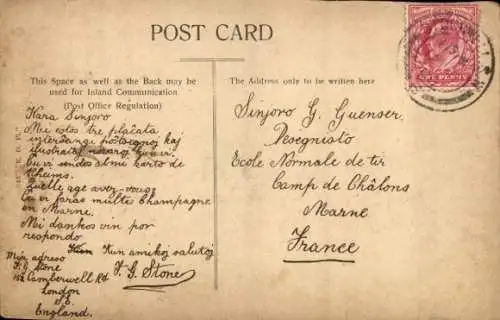 POST CARD
This Space as well as the Back may be
used for Inland Communication
(Post Office Regulation)
The Address only to be written here
ONE PENNY
Kara Sinjoro
Mi estos tre plaĉata
interŝanĝi poŝtsignoj kaj
ilustrataj kun vi.
Ĉu vi sendos al mi karto de
Rheims.
Quelle age avez-vous
Ĉu vi faras multe Champagne
en Marne.
Mi dankos vin por
respondo
Kun amikoj salutoj
F. G. Stone
Mia adreso
F. G. Stone
Camberwell Rd
London
S.E.
England.
Sinjoro G. Guenser,
Desegnisto
Ecole Normale de tir
Camp de Châlons
Marne
France